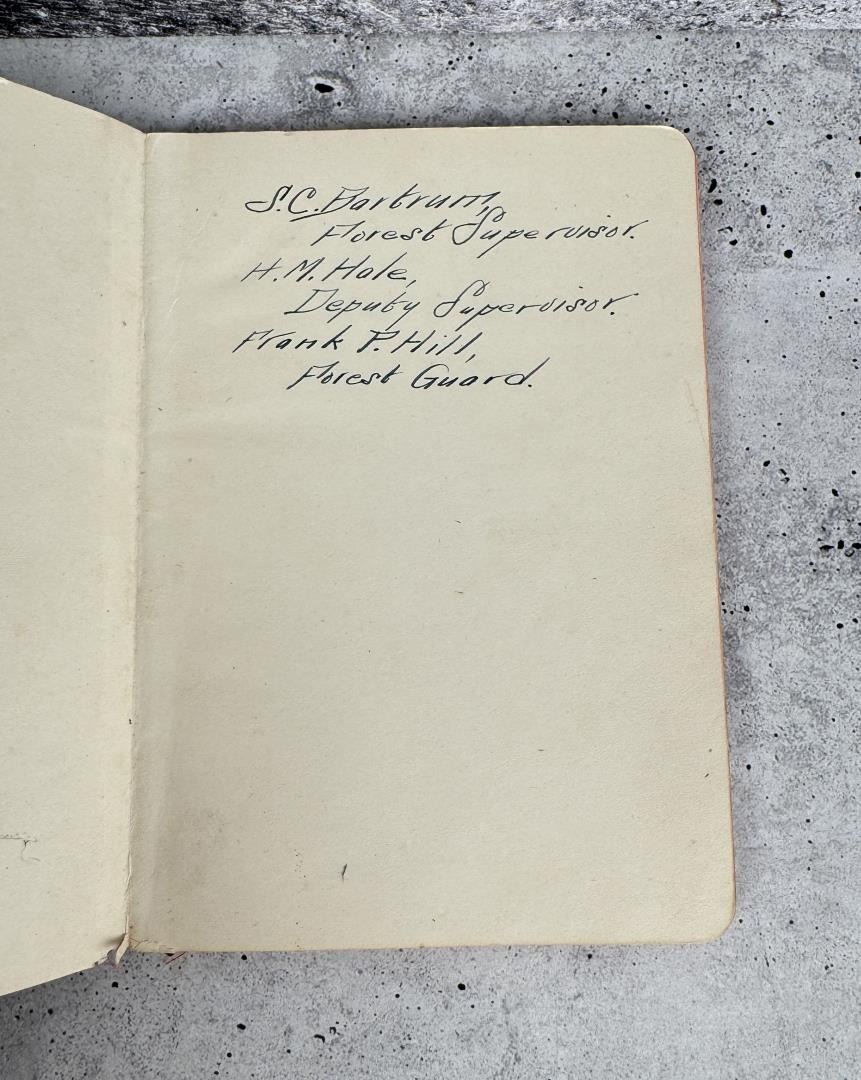 S.C. Bartrum,
Forest Supervisor.
H.M. Hale,
Deputy Supervisor.
Frank P. Hill,
Forest Guard.